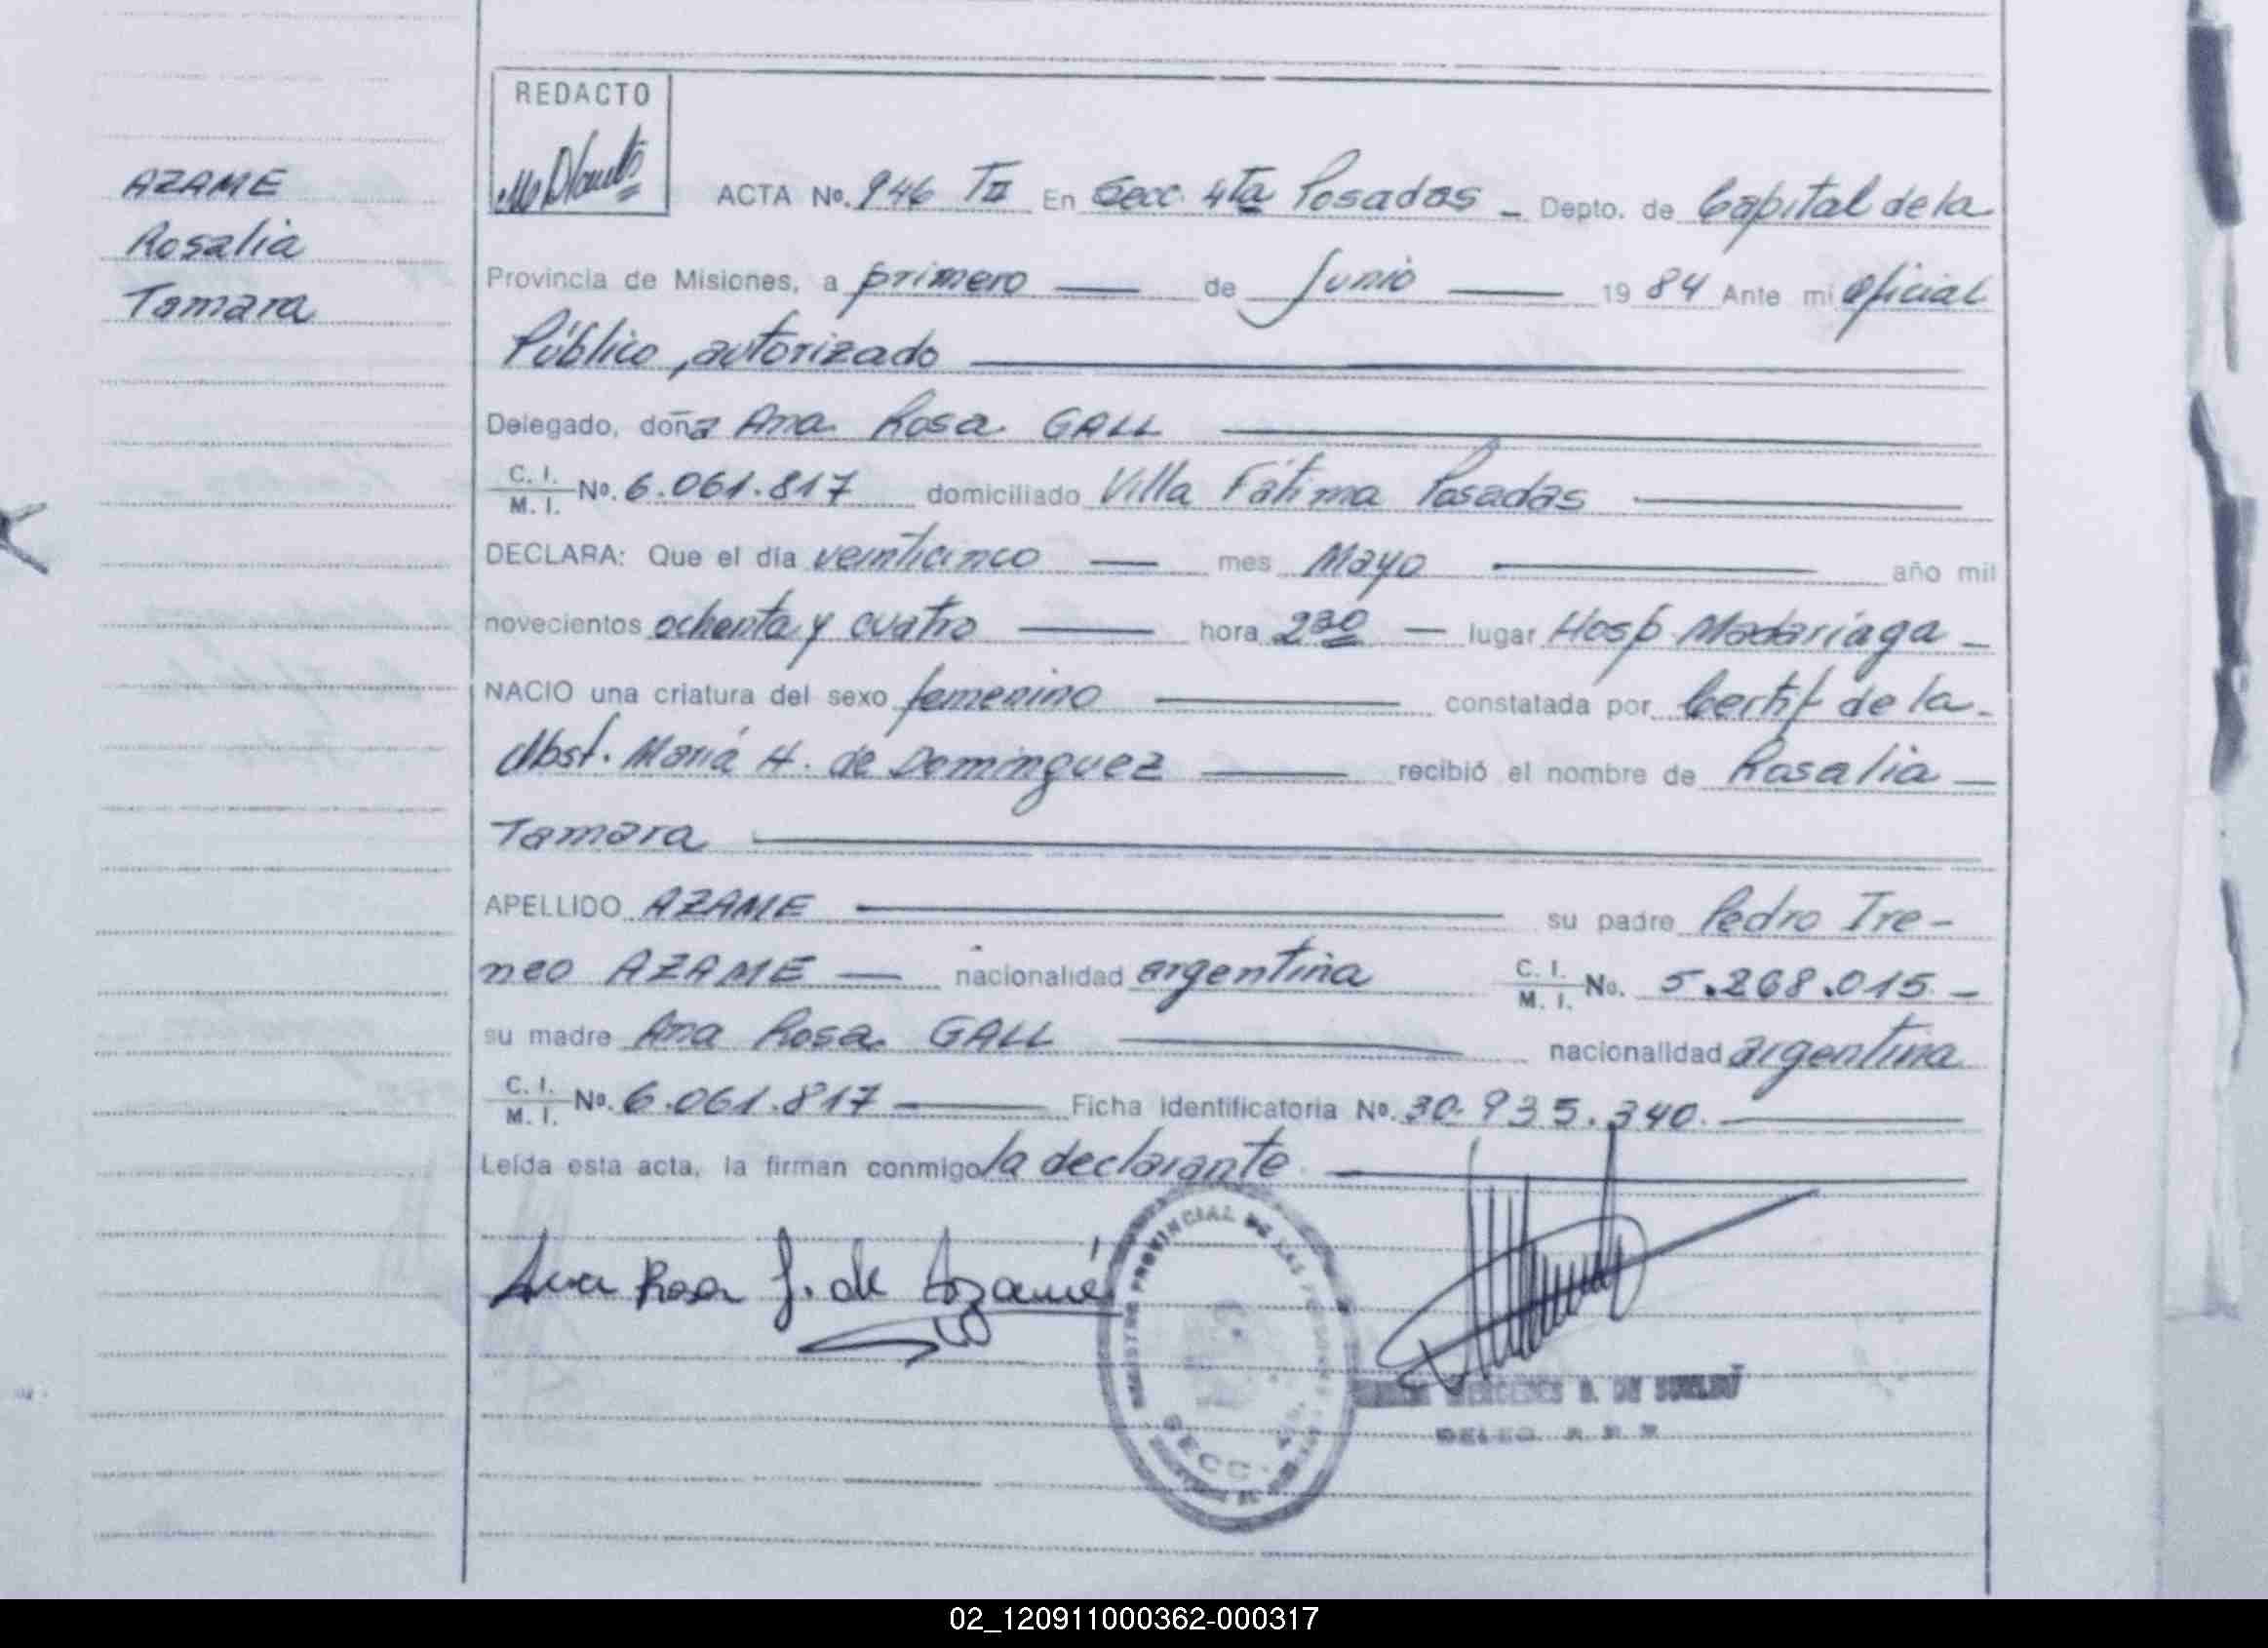 REDACTO
AZAME
Rosalia
Tamara
ACTA No. 946 TII En Secc. 4ta Posadas - Depto. de Capital de la
Provincia de Misiones, a primero — de Junio — 1984 Ante mi oficial
Público autorizado
Delegado, doña Ana Rosa GALL
C. I. / M. I. No. 6.061.817 domiciliado Villa Fátima Posadas
DECLARA: Que el día veinticinco — mes Mayo — año mil
novecientos ochenta y cuatro — hora 2 30 — lugar Hosp. Madariaga -
NACIO una criatura del sexo femenino — constatada por Certif de la -
Obst. María H. de Dominguez — recibió el nombre de Rosalia —
Tamara
APELLIDO AZAME — su padre Pedro Ire-
neo AZAME — nacionalidad argentina C. I. / M. I. No. 5.268.015 -
su madre Ana Rosa GALL — nacionalidad argentina
C. I. / M. I. No. 6.061.817 — Ficha Identificatoria No. 30.935.340.
Leída esta acta, la firman conmigo la declarante
Ana Rosa G. de Azamé
PROVINCIAL DE LAS
SECC.
MERCEDES
DELEG.
02_120911000362-000317